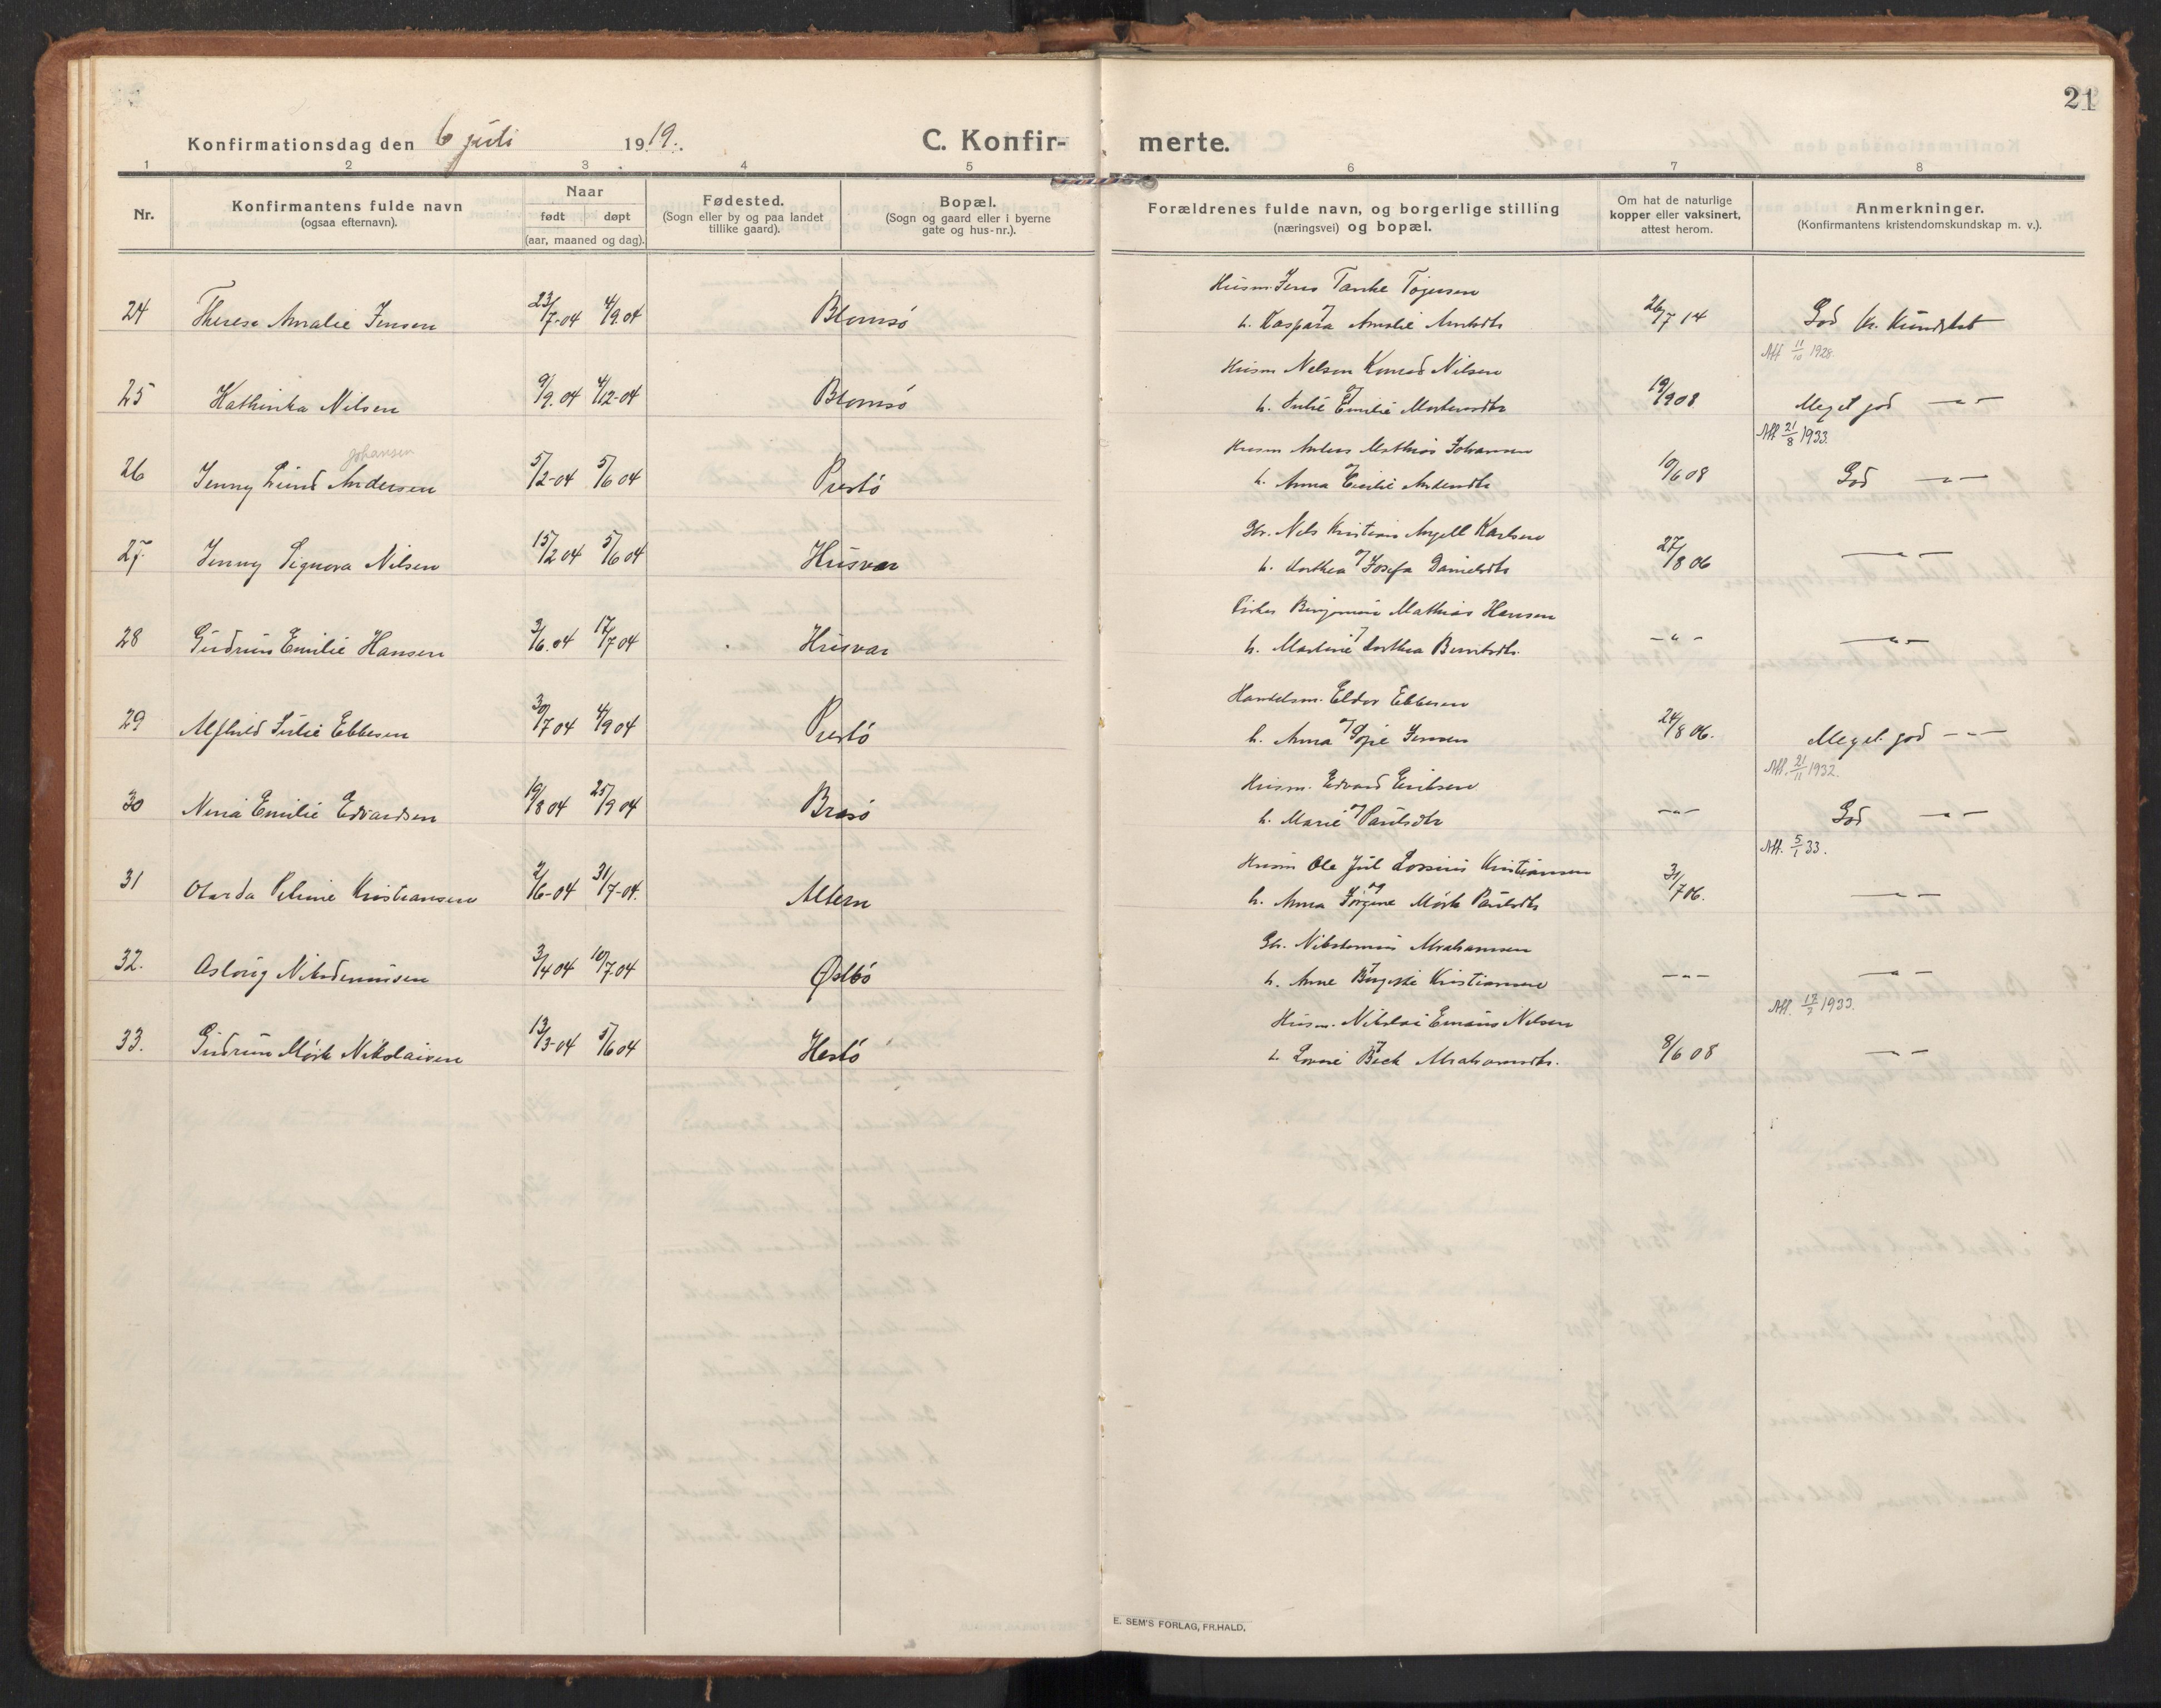 21
Konfirmationsdag den 6 juli 1919.
C. Konfir- merte.
1 2 3 4 5 6 7 8
Nr.
Konfirmantens fulde navn
(ogsaa efternavn).
Naar
født døpt
(aar, maaned og dag).
Fødested.
(Sogn eller by og paa landet
tillike gaard).
Bopæl.
(Sogn og gaard eller i byerne
gate og hus-nr.).
Forældrenes fulde navn, og borgerlige stilling
(næringsvei) og bopæl.
Om hat de naturlige
kopper eller vaksinert,
attest herom.
Anmerkninger.
(Konfirmantens kristendomskundskap m. v.).
Husm. Jens Tanke Togersen
24 Therese Amalie Jensen 23/7-04 4/9.04 Blomsö og h. Kaspara Amalie 26/7 14 God Kr. Kundskab
Att 11/10 1928.
Husm Nelson Konrad Nilsen
25 Kathinka Nilsen 9/9.04 4/12-04 Blomsö og h. Julie Emilie 19/9 08 Meget god -"-
Att 21/8 1933.
Johansen
Husm Anders Mathias Johansen
26 Jenny Lind Andersen 5/2-04 5/6 04 Prestö og h. Anna Emilie Andersdtr 10/6 08 God -"-
Gbr. Nils Kristian Angell Karlsen
27. Jenny Signora Nilsen 15/2 04 5/6 04 Husvær og h. Dorthea Josefa Danielsdtr 27/8 06 -"-
Fisker Benjamin Mathias Hansen
28 Gudrun Emilie Hansen 3/6.04 17/7 04 Husvær og h. Martine Dorthea Berntsdtr. -"- -"-
Handelsm. Eldor Ebbesen
29 Alfhild Julie Ebbesen 30/7 04 4/9 04 Prestö og h. Anna Sofie Jensen 24/8 06. Meget god -"-
Att. 21/11 1932.
Husm. Edvard Eriksen
30 Nina Emilie Edvardsen 19/8 04 25/9 04 Brasö og h. Marie Paulsdtr -"- God -"-
Att. 5/1 33.
Husm Ole Jul Kristiansen
31 Kristiansen 2/6-04 31/7-04. Altern og h. Anna Jörgine Mörk Paulsdtr 31/7 06. -"-
Gbr. Nikodemus Abrahamsen
32. Aslaug Nikodemussen 3/4 04 10/7.04 Østbö og h. Anne Birgitte Kristiansen -"- -"-
Att. 1933.
Husm. Nikolai Emaus Nilsen
33. Gudrun Mörk Nikolaisen 13/3-04 5/6 04 Hestö og h. Lovise Beck Abrahamsdtr. 8/6 08 -"-
E. SEM'S FORLAG, FR.HALD.